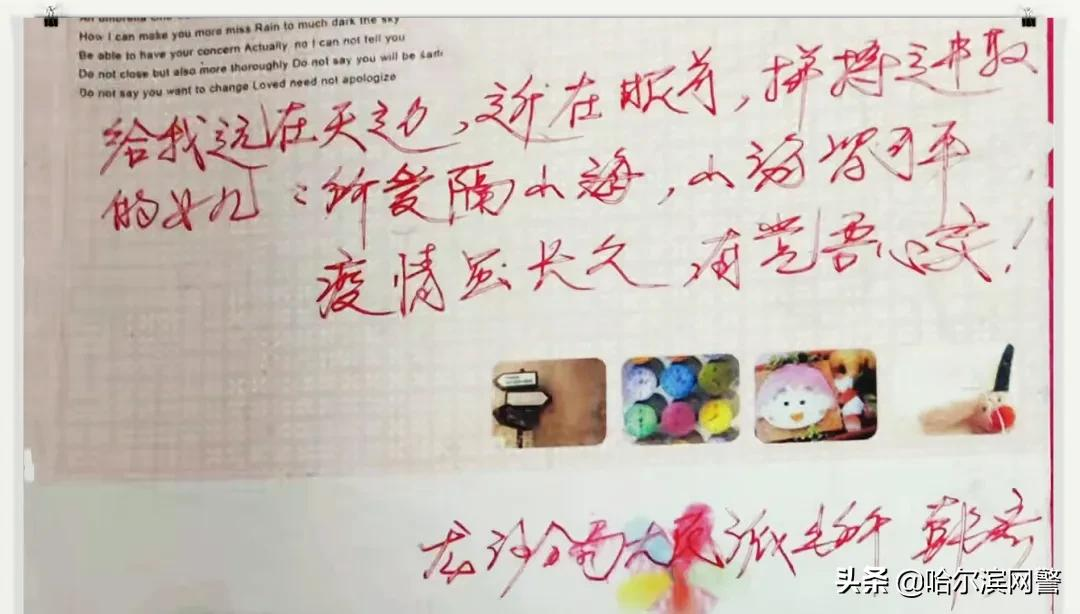 How I can make you more miss Rain to much dark the sky
Be able to have your concern Actually, no I can not tell you
Do not close but also more thoroughly Do not say you will be
Do not say you want to change Loved need not apologize
给我远在天边,近在眼前,拼搏进取
的女儿:所爱隔山海,山海皆可平
疫情虽长久,有党吾心安!
龙沙分局大民派出所 韩
头条 @哈尔滨网警